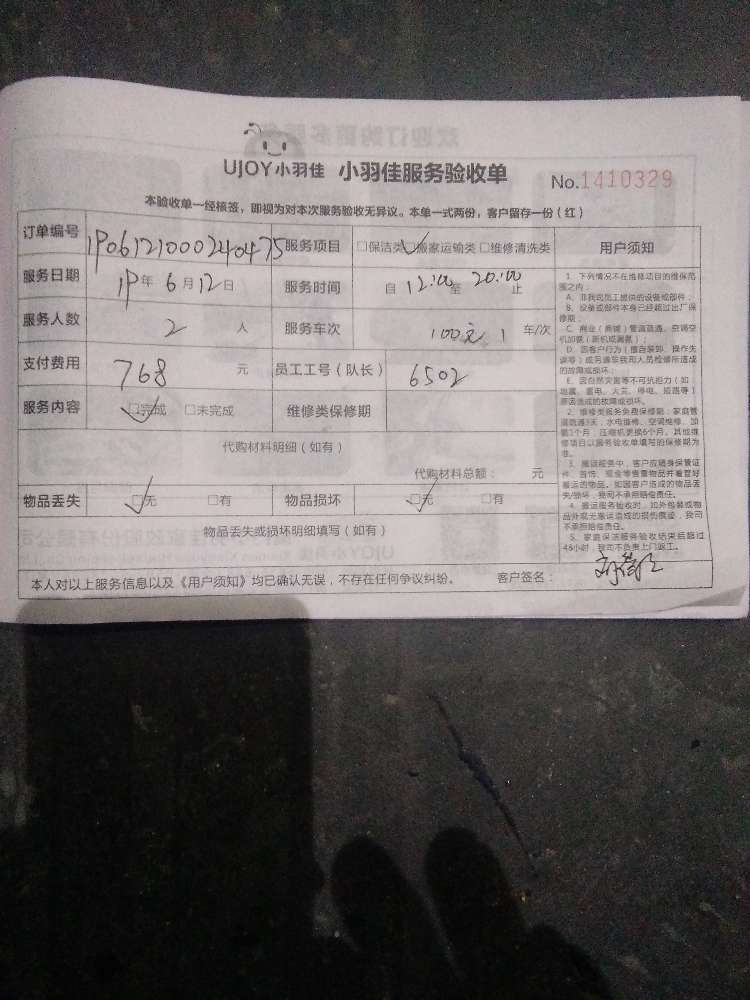 UJOY小羽佳 小羽佳服务验收单 No.1410329
本验收单一经核签，即视为对本次服务验收无异议。本单一式两份，客户留存一份（红）
订单编号 1906121000240475 服务项目 □保洁类 □搬家运输类 □维修清洗类 用户须知
服务日期 19年6月12日 服务时间 自12:00至20:00止
服务人数 2 人 服务车次 100元 1 车/次
支付费用 768 元 员工工号（队长） 6502
服务内容 □完成 □未完成 维修类保修期
代购材料明细（如有）
代购材料总额： 元
物品丢失 □无 □有 物品损坏 □无 □有
物品丢失或损坏明细填写（如有）
本人对以上服务信息以及《用户须知》均已确认无误，不存在任何争议纠纷。 客户签名：
1、下列情况不在维修项目的维保范
围之内：
A、非我司员工提供的设备或部件；
B、设备或部件本身已经超过出厂保
修期；
C、商业（商铺）管道疏通、空调空
机加氨（新机或漏氨）；
D、因客户行为（擅自装卸、操作失
误等）或另请非我司人员检修所造成
的故障或损坏；
E、因自然灾害等不可抗拒力（如：
地震、雷电、火灾、停电、短路等）
原因造成的故障或损坏。
2、维修类服务免费保修期：家庭管
道疏通3天，水电维修、空调维修、加
氨1个月，压缩机更换6个月。其他维
修项目以服务验收单填写的保修期为
准。
3、搬运服务中，客户应随身保管证
件、首饰、现金等贵重物品并看管好
搬运的物品。如因客户造成的物品丢
失/损坏，我司不承担赔偿责任。
4、搬运服务验收时，如外包装或物
品外观无搬运造成的损伤痕迹，我司
不承担赔偿责任。
5、家庭保洁服务验收结束后超过
48小时，我司不负责上门返工。